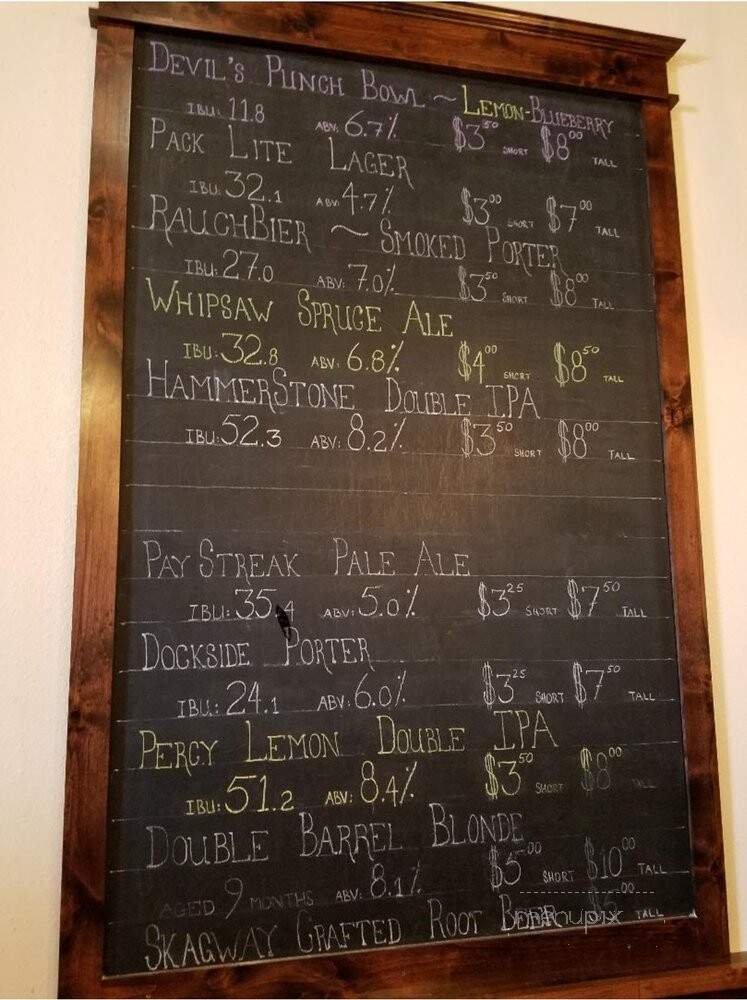 DEVIL'S PUNCH BOWL ~ LEMON-BLUEBERRY
IBU: 11.8 ABV: 6.7% $3.50 SHORT $8.00 TALL
PACK LITE LAGER
IBU: 32.1 ABV 4.7% $3.00 SHORT $7.00 TALL
RAUCHBIER ~ SMOKED PORTER
IBU: 27.0 ABV: 7.0% $3.50 SHORT $8.00 TALL
WHIPSAW SPRUCE ALE
IBU: 32.8 ABV: 6.8% $4.00 SHORT $8.50 TALL
HAMMERSTONE DOUBLE IPA
IBU: 52.3 ABV: 8.2% $3.50 SHORT $8.00 TALL
PAY STREAK PALE ALE
IBU: 35.4 ABV: 5.0% $3.25 SHORT $7.50 TALL
DOCKSIDE PORTER
IBU: 24.1 ABV: 6.0% $3.25 SHORT $7.50 TALL
PERCY LEMON DOUBLE IPA
IBU: 51.2 ABV: 8.4% $3.50 SHORT $8.00 TALL
DOUBLE BARREL BLONDE
AGED 9 MONTHS ABV: 8.1% $5.00 SHORT $10.00 TALL
SKAGWAY CRAFTED ROOT BEER $5.00 TALL
menupix